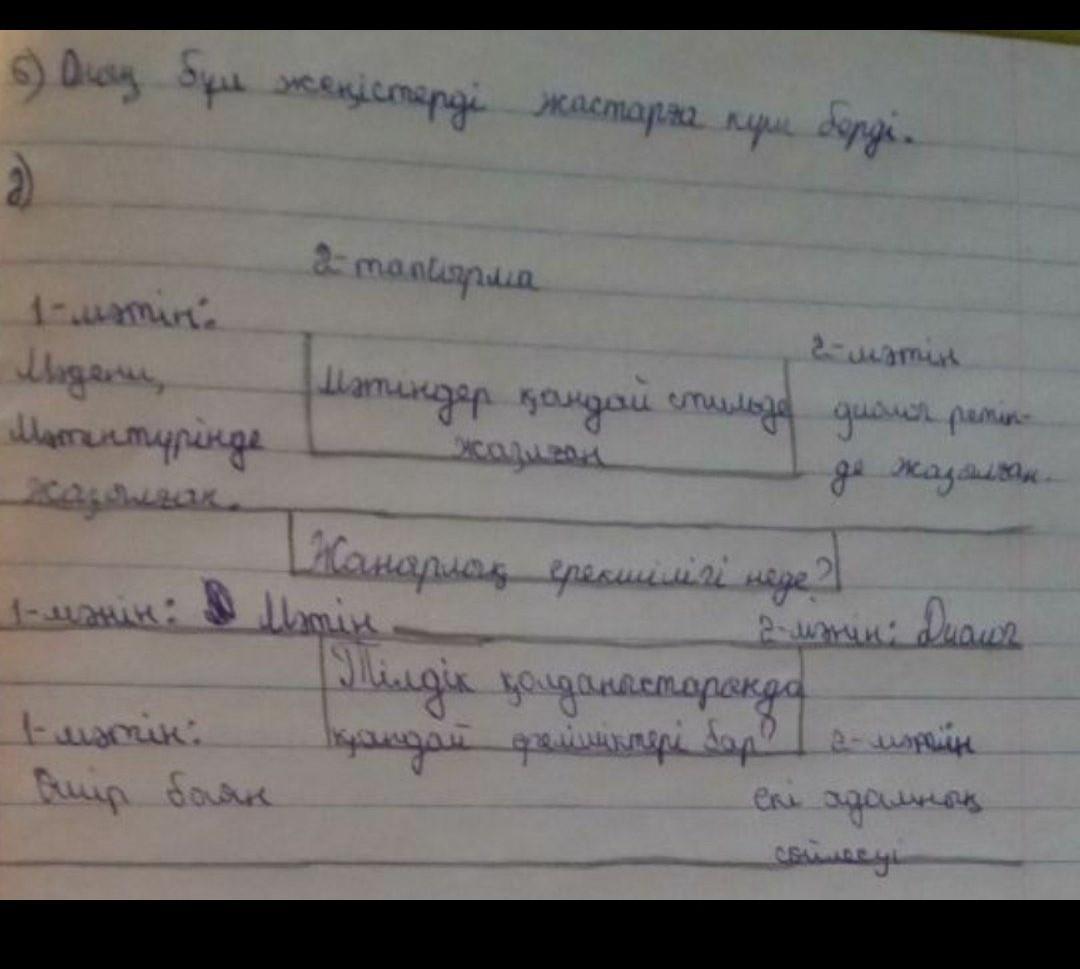 б) Оның бұл жеңістерді жастарға күш берді.
д)
2-тапсырма
1-мәтін:
Мәдени,
Мәтентүрінде
жазылған.
Мәтіндер қандай стильде
жазылған
2-мәтін
диалог ретін-
де жазылған.
Жанарлық ерекшілігі неде?
1-мәнін: Мәтін
2-мәнін: Диалог
Тілдік қолданыстарында
қандай бар?
1-мәтін:
Өмір баян
2-мәтін
екі адамның
сөйлесуі